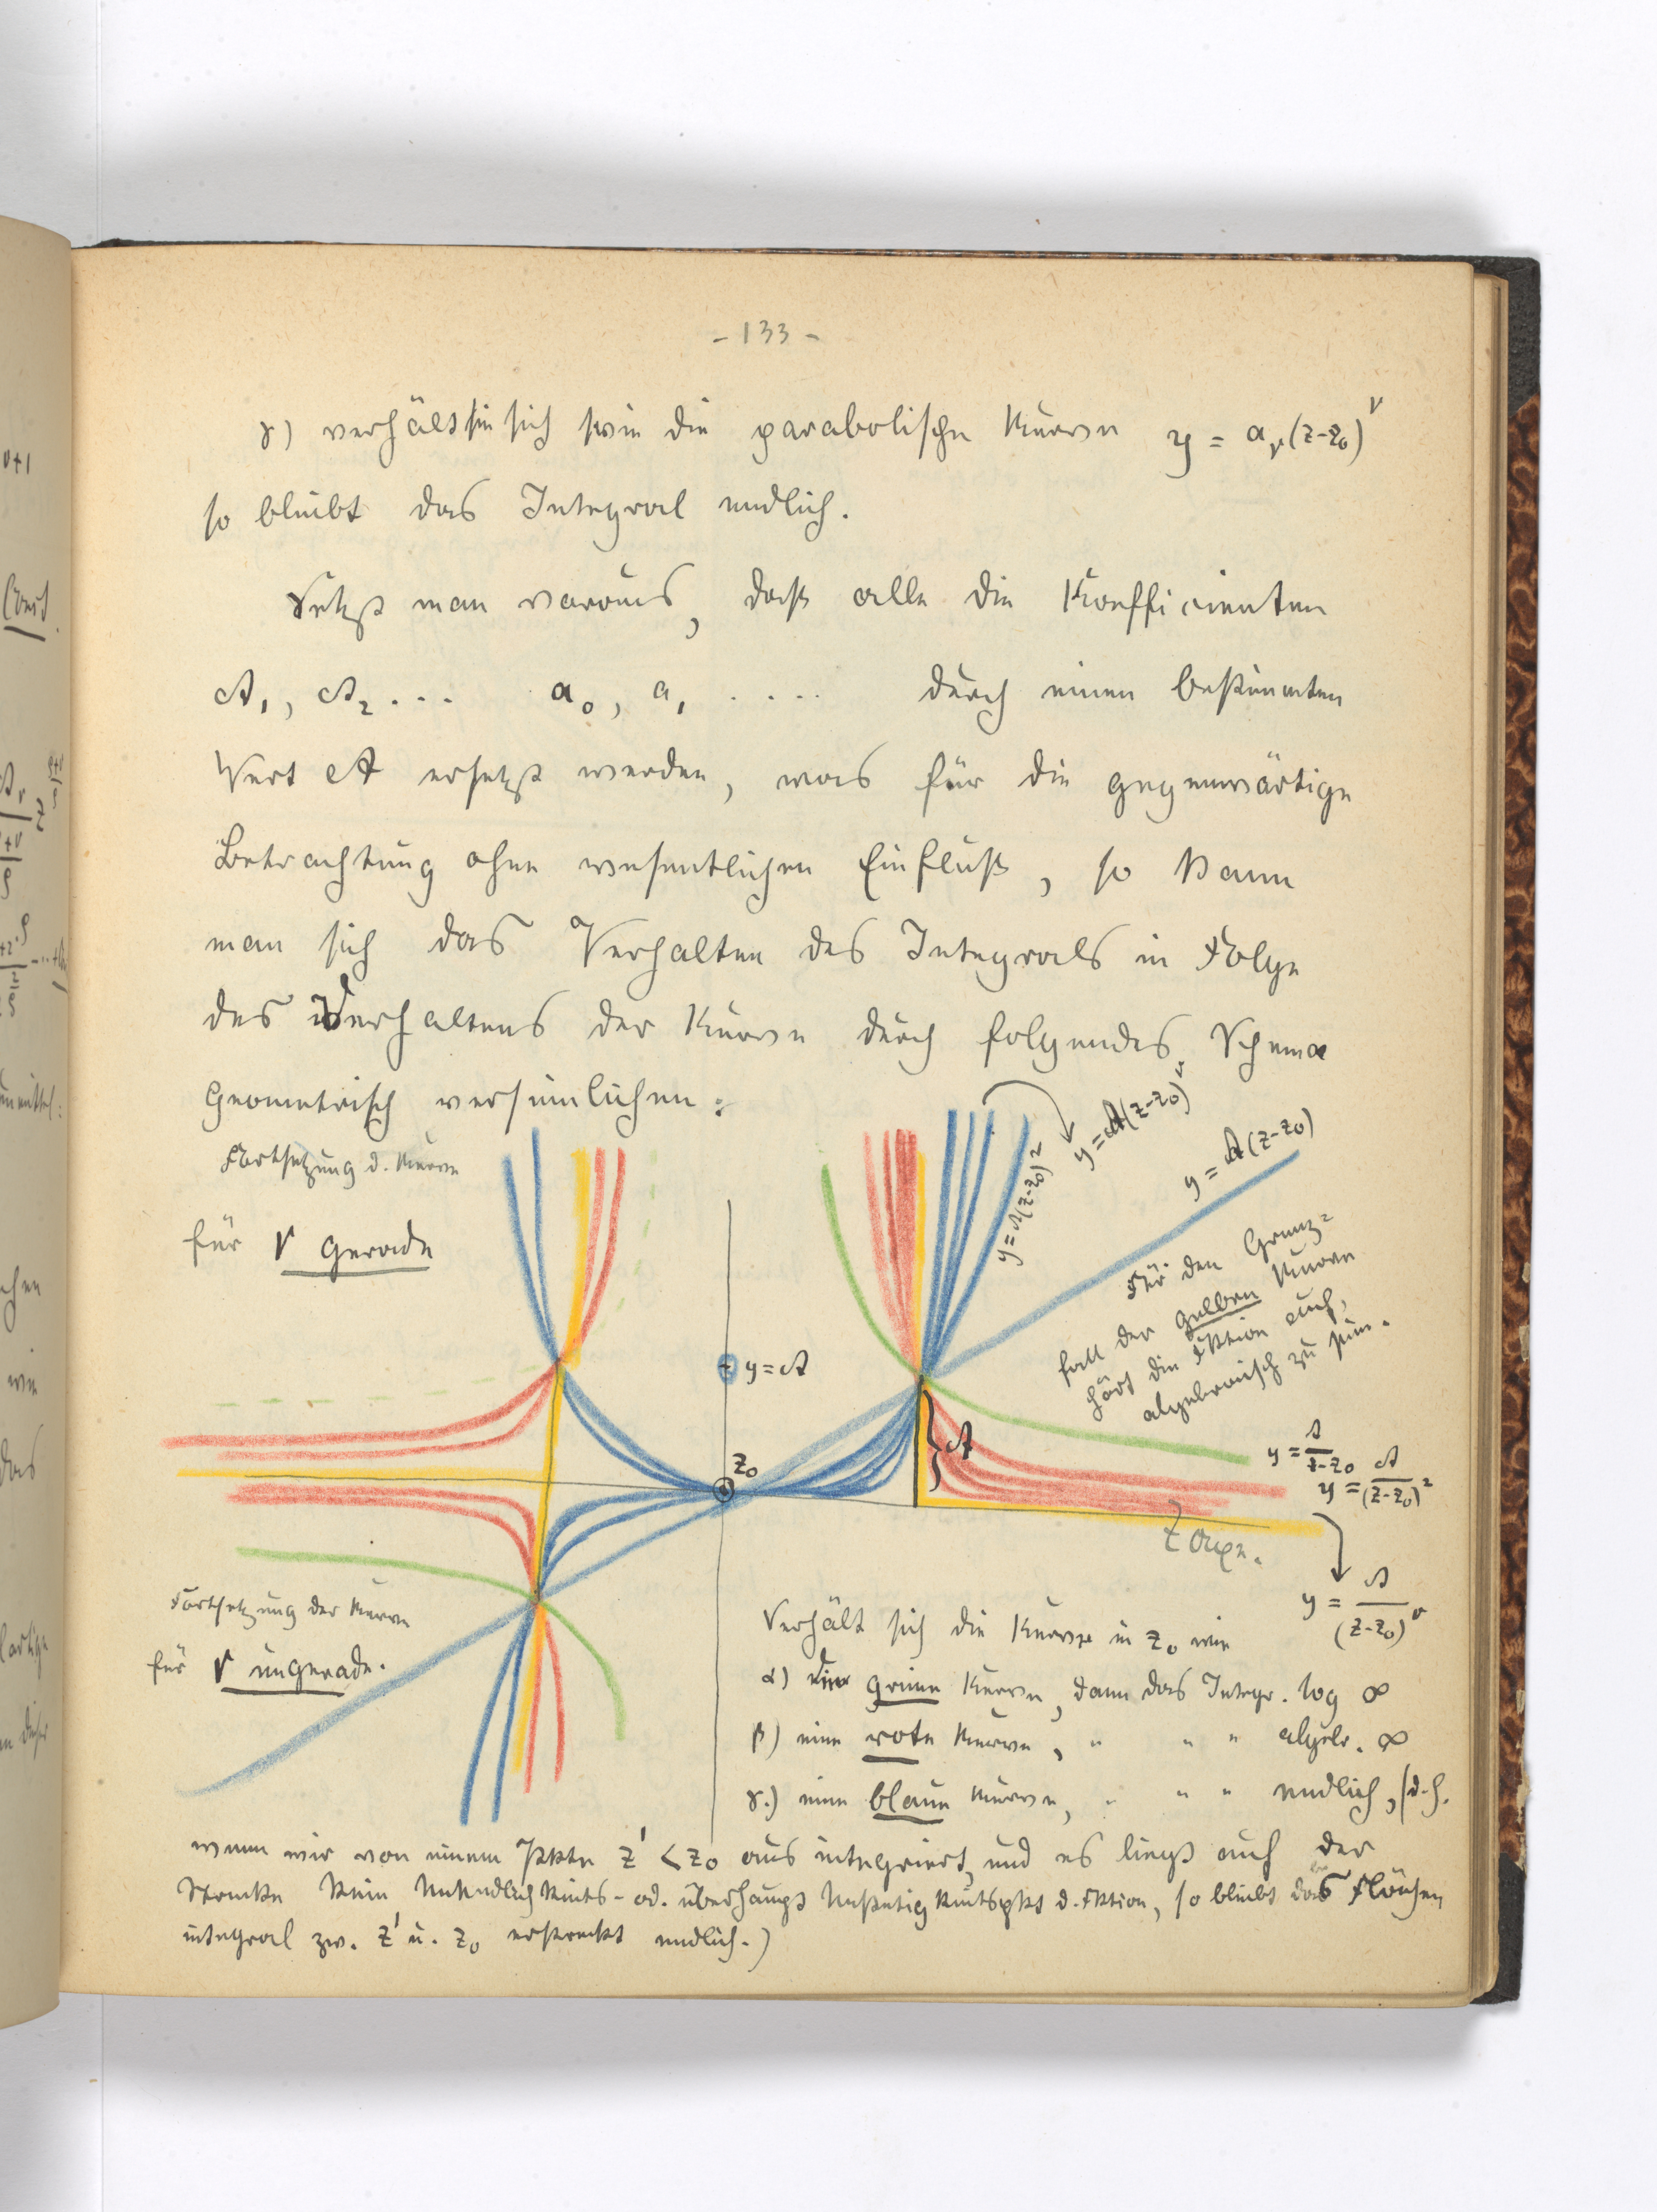 - 133 -
γ) verhält sie sich wie die parabolische Kurve y = aᵥ(z-z₀)^ν
so bleibt das Integral endlich.
Setzt man voraus, daß alle die Koefficienten
A₁, A₂ ... a₀, a₁ .... durch einen bestimmten
Wert A ersetzt werden, was für die gegenwärtige
Betrachtung ohne wesentlichen Einfluß, so kann
man sich das Verhalten des Integrals in Folge
des Verhaltens der Kurve durch folgendes Schema
geometrisch versinnlichen:
Fortsetzung d. Kurve
für ν gerade
y = A(z-z₀)²
y = A(z-z₀)^ν
y = A(z-z₀)
Für den Grenz=
fall der gelben Kurve
hört die Fktion auf,
algebraisch zu sein.
y = A
z₀
A
y = A/(z-z₀)
y = A/(z-z₀)²
z Axe.
y = A/(z-z₀)^ν
Fortsetzung der Kurve
für ν ungerade.
Verhält sich die Kurve in z₀ wie
α) eine grüne Kurve, dann das Integr. log ∞
β) eine rote Kurve, " " " algebr. ∞
γ.) eine blaue Kurve, " " " endlich, (d.h.
wenn wir von einem Pkte z' < z₀ aus integriert, und es liegt auf der
Strecke kein Unendlichkeits- od. überhaupt Unstetigkeitspkt d. Fktion, so bleibt das Flächen
integral zw. z' u. z₀ erstreckt endlich.)